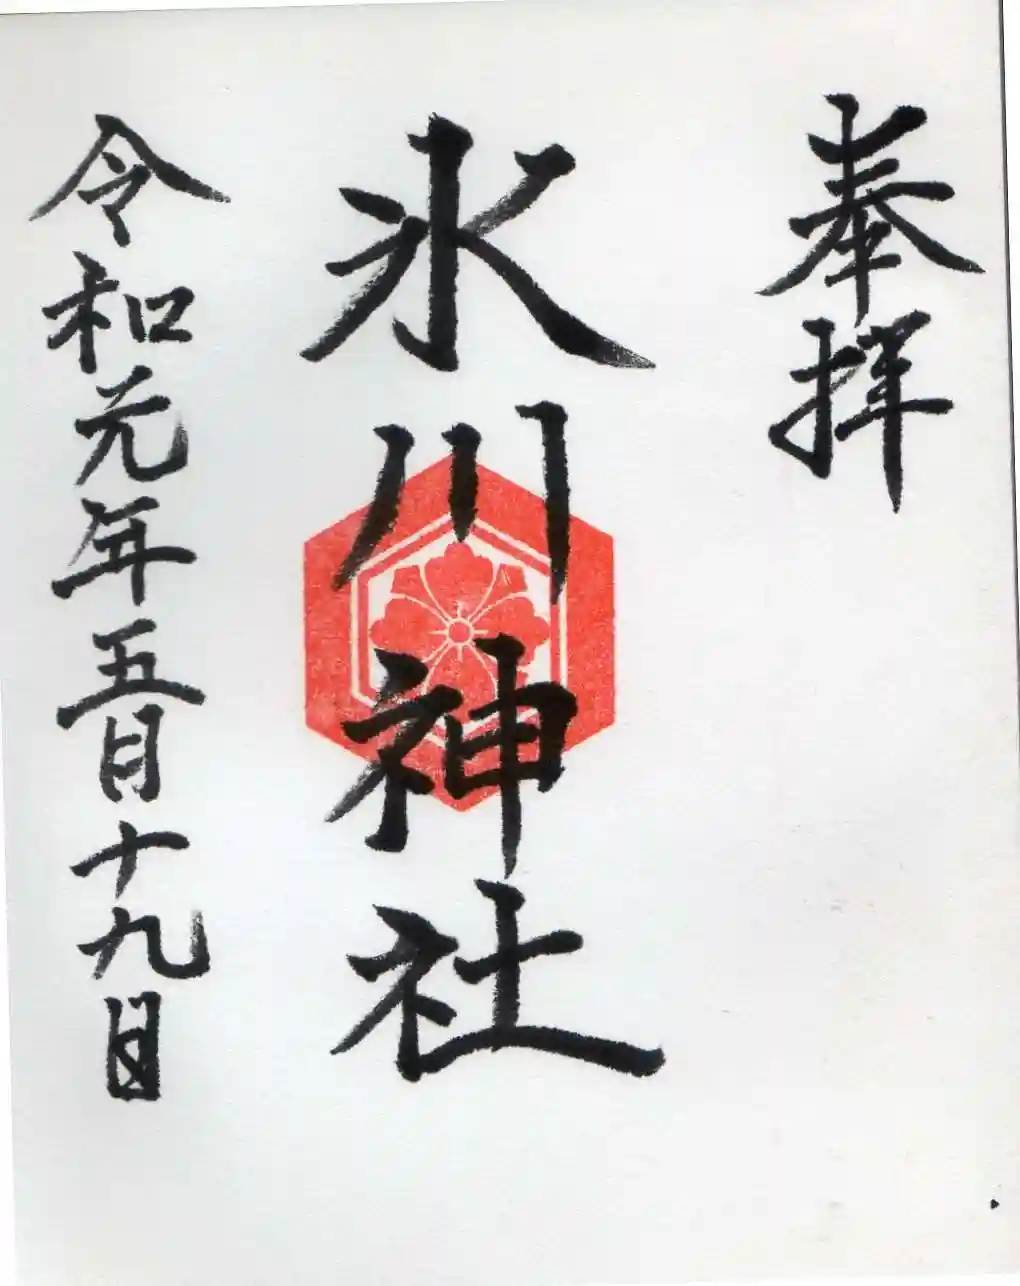 奉拝
氷川神社
令和元年五月十九日